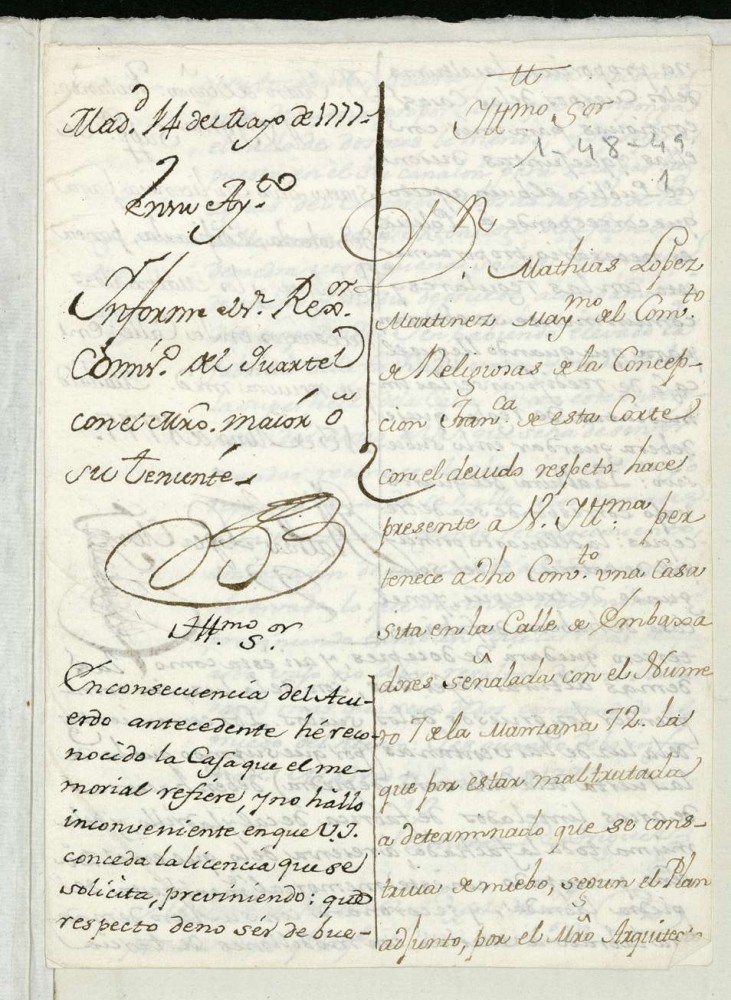 Mad.d 14 de Mayo de 1777.
En su Ay.to
Informe el s.r Rex.or
Comis.o del Quartel
con el Mro. maior ô
su teniente
Ill.mo S.or
En consecuencia del Acu-
erdo antecedente hé reco-
nocido la Casa que el me-
morial refiére, y no hállo
inconveniente en que V.I.
conceda la licencia que se
solicita, previniendo: que
respecto de no sér de bue-
tt
Ill.mo Sor
1-48-49
1
D.n Mathias Lopez
Martinez May.mo del Com.to
de Religiosas de la Concep-
cion Fran.ca de esta Corte
con el devido respeto hace
presente a V. Ill.ma per
tenece a dho Com.to vna Casa
sita en la Calle de Embaxa
dores señalada con el Nume
ro 7 de la Manzana 72. la
que por estar maltratada
a determinado que se cons-
truia de nuebo, segun el Plan
adjunto, por el Mrô Arquitecto